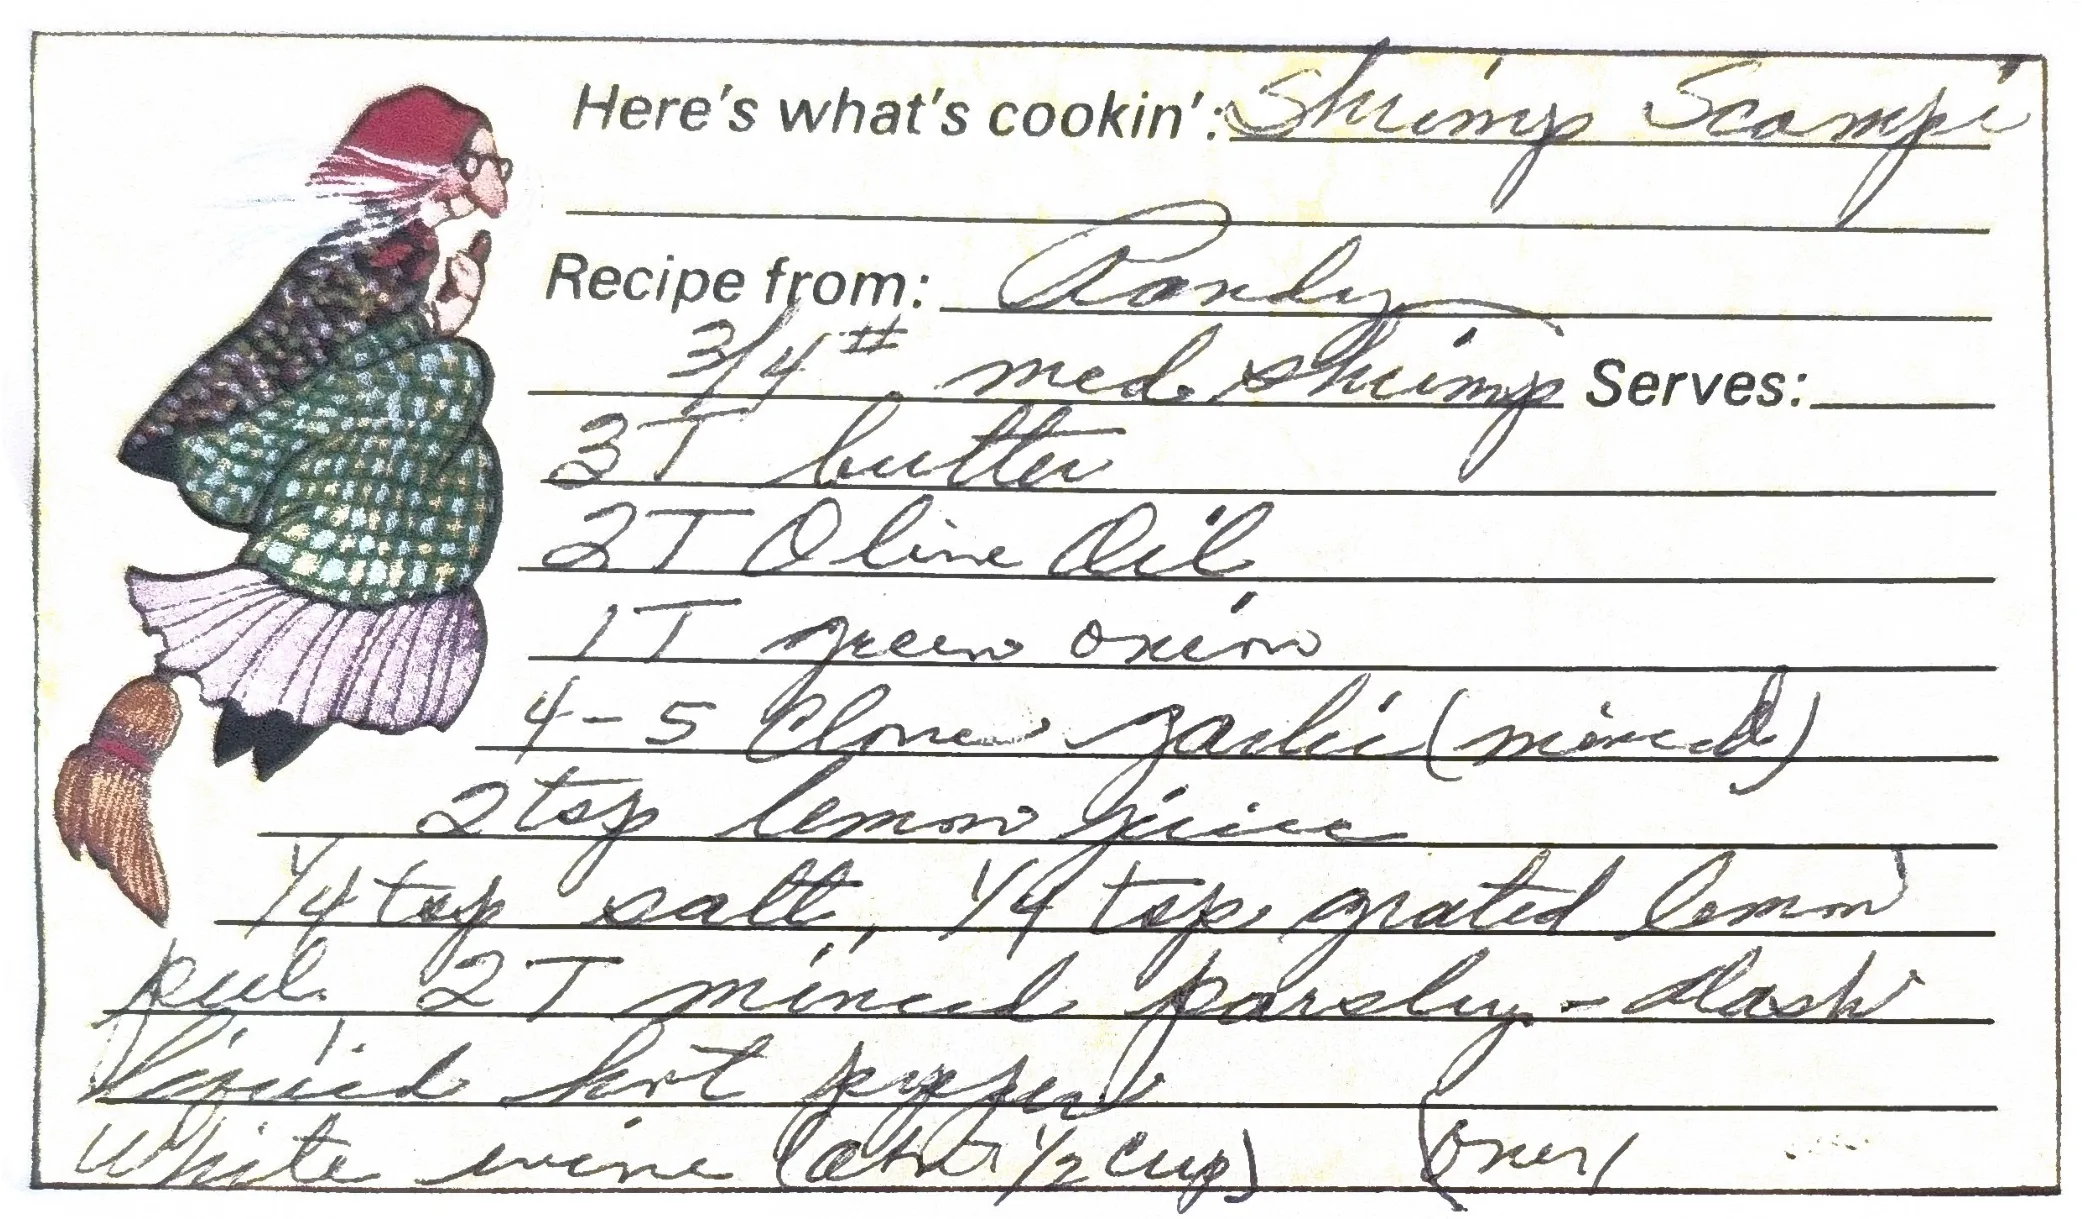 Here's what's cookin': Shrimp Scampi
Recipe from: Randy
3/4 # med. shrimp Serves:
3T butter
2T Olive Oil
1T green onion
4-5 Cloves garlic (minced)
2 tsp lemon juice
1/4 tsp salt, 1/4 tsp. grated lemon
peel. 2T minced parsley - dash
liquid hot pepper
White wine (abt 1/2 cup) (over)